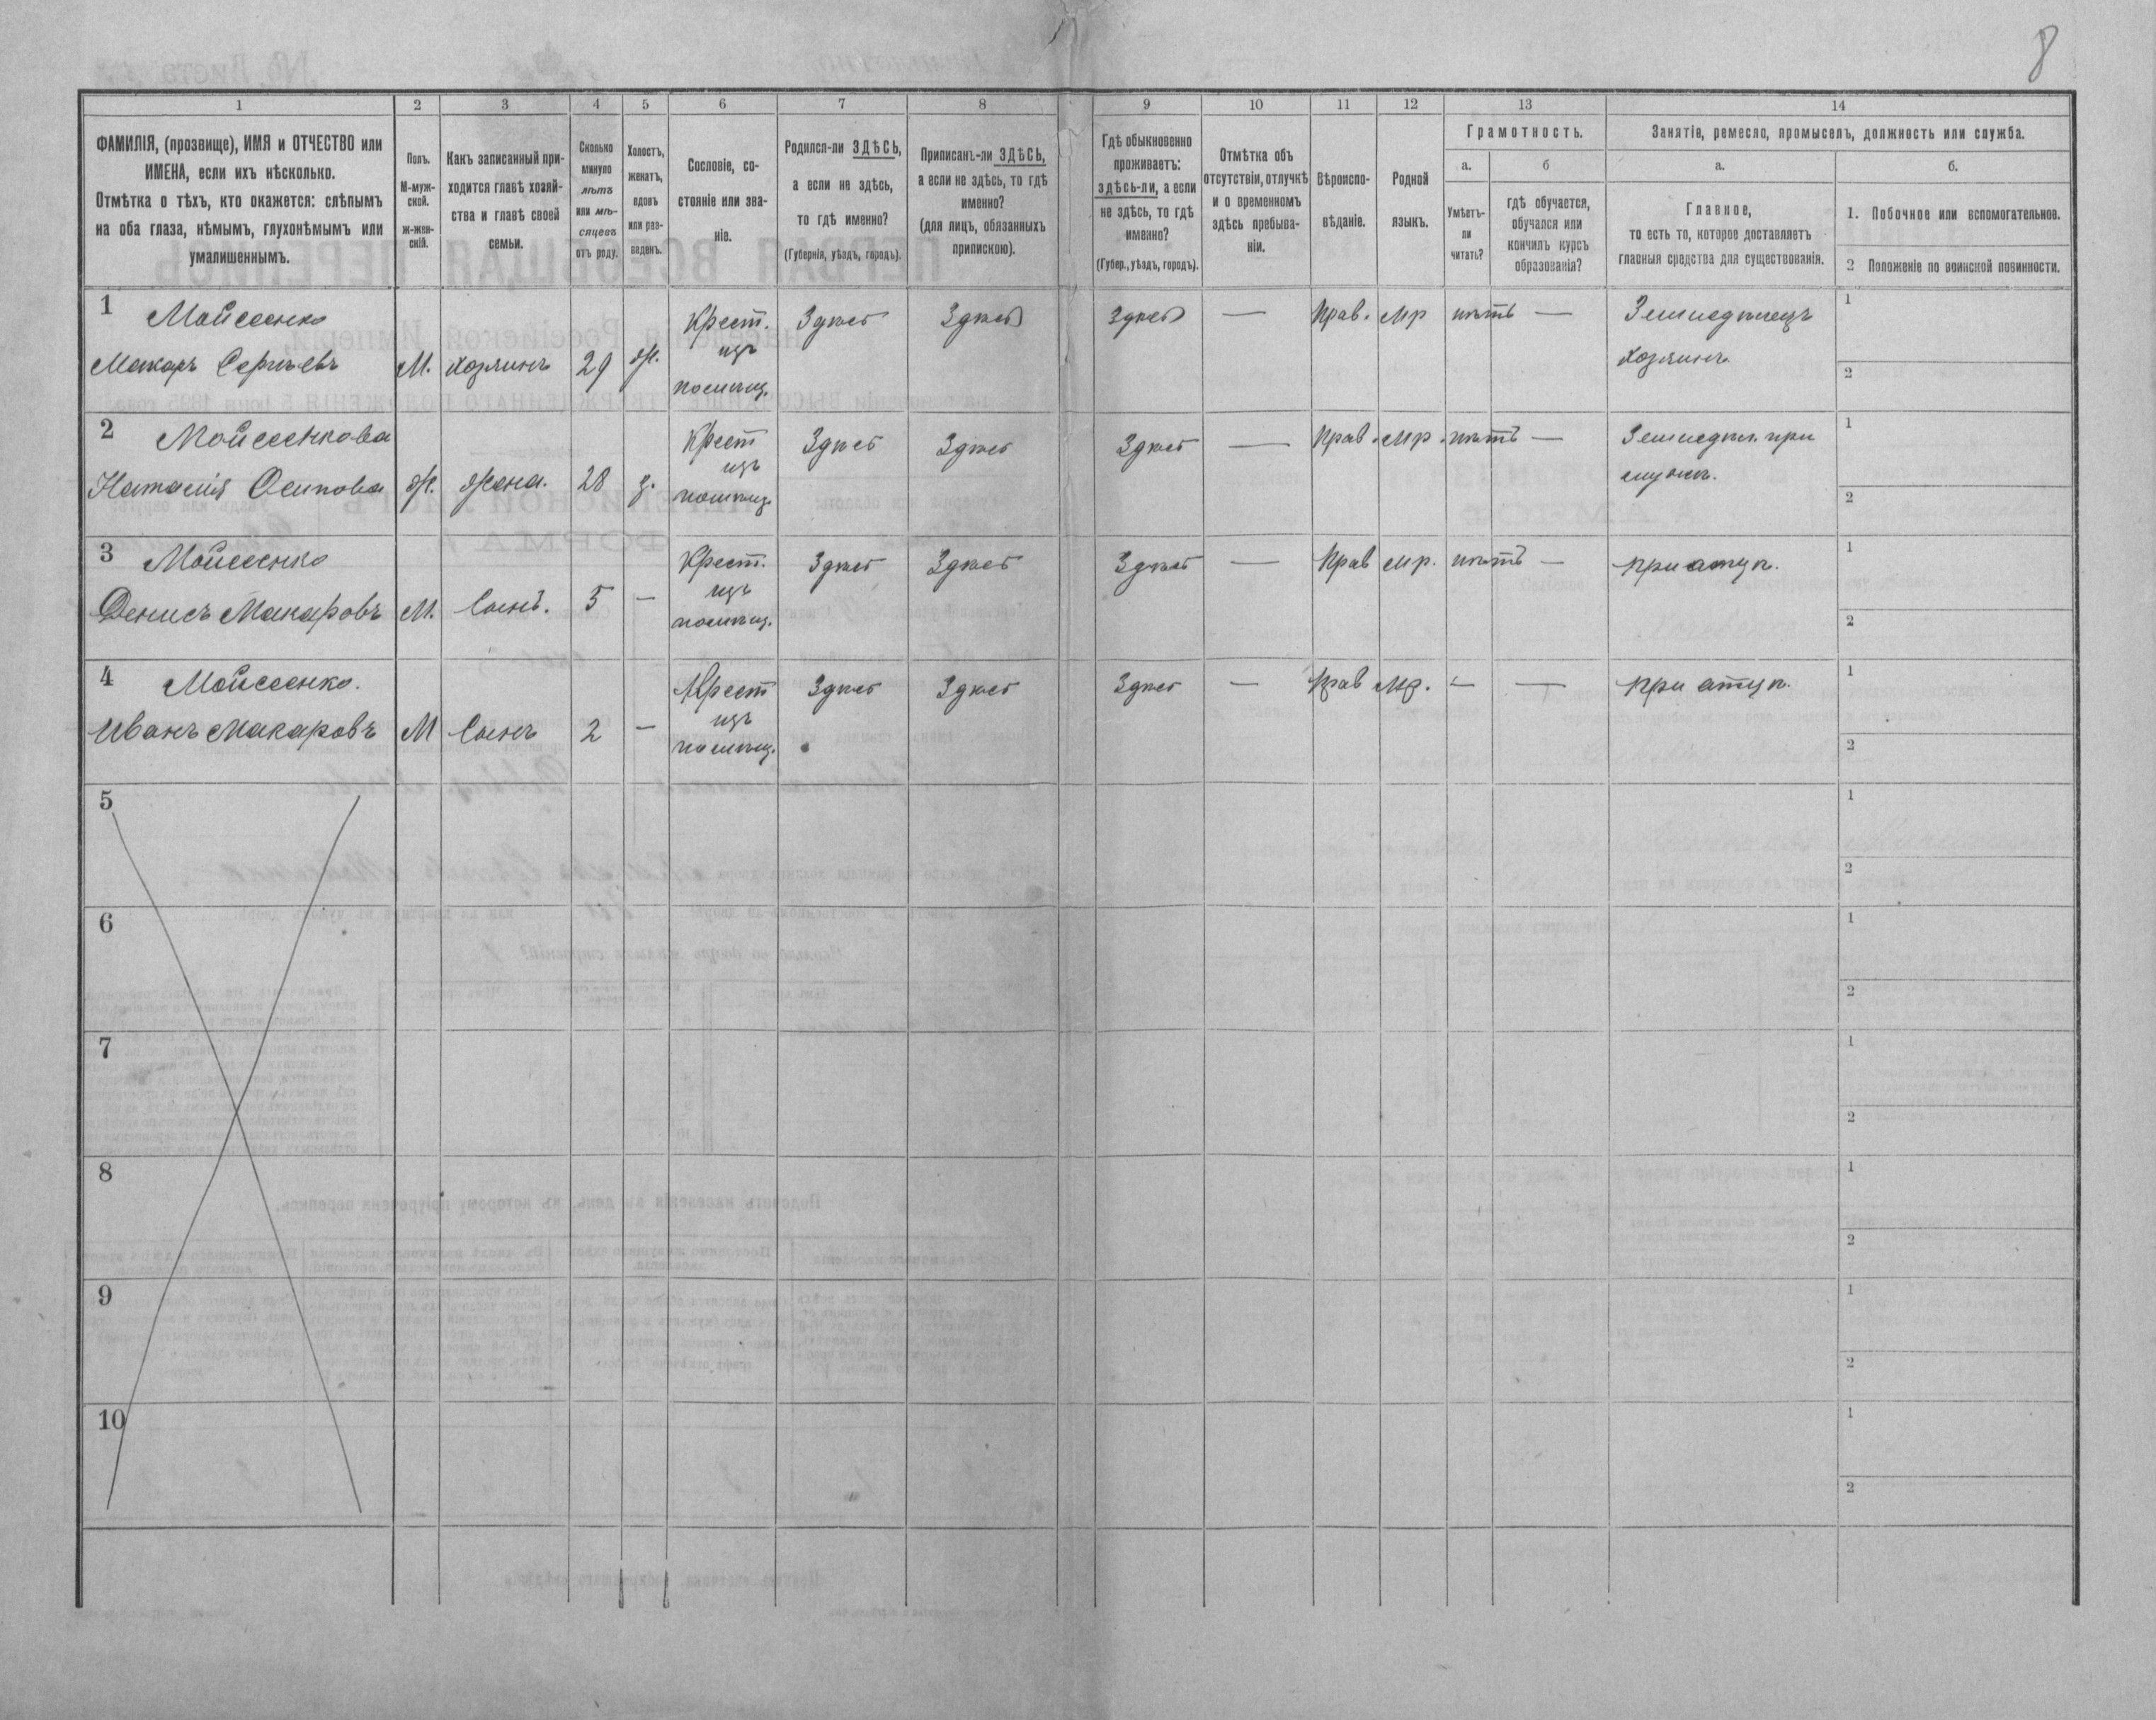 8
1 2 3 4 5 6 7 8 9 10 11 12 13 14
ФАМИЛІЯ, (прозвище), ИМЯ и ОТЧЕСТВО или
ИМЕНА, если ихъ нѣсколько.
Отмѣтка о тѣхъ, кто окажется: слѣпымъ
на оба глаза, нѣмымъ, глухонѣмымъ или
умалишеннымъ.
Полъ.
М-муж-
ской.
ж-жен-
скій.
Какъ записанный при-
ходится главѣ хозяй-
ства и главѣ своей
семьи.
Сколько
минуло
лѣтъ
или мѣ-
сяцевъ
отъ роду.
Холостъ,
женатъ,
вдовъ
или раз-
веденъ.
Сословіе, со-
стояніе или зва-
ніе.
Родился-ли ЗДѢСЬ,
а если не здѣсь,
то гдѣ именно?
(Губернія, уѣздъ, городъ).
Приписанъ-ли ЗДѢСЬ,
а если не здѣсь, то гдѣ
именно?
(для лицъ, обязанныхъ
припискою).
Гдѣ обыкновенно
проживаетъ:
здѣсь-ли, а если
не здѣсь, то гдѣ
именно?
(Губер., уѣздъ, городъ).
Отмѣтка объ
отсутствіи, отлучкѣ
и о временномъ
здѣсь пребыва-
ніи.
Вѣроиспо-
вѣданіе.
Родной
языкъ.
Грамотность.
а.
Умѣетъ-
ли
читать?
б
гдѣ обучается,
обучался или
кончилъ курсъ
образованія?
Занятіе, ремесло, промыселъ, должность или служба.
а.
Главное,
то есть то, которое доставляетъ
главныя средства для существованія.
б.
1. Побочное или вспомогательное.
2 Положеніе по воинской повинности.
1 Мойсеенко Крест. Здѣсь Здѣсь Здѣсь — Прав. Мр нѣтъ — Земледѣлецъ 1
Макаръ Сергѣевъ М. Хозяинъ 29 ж. изъ помѣщ. Хозяинъ 2
2 Мойсеенкова Крест Здѣсь Здѣсь Здѣсь — Прав. Мр. нѣтъ — Земледѣл. при 1
Наталія Осипова ж. жена. 28 з. изъ помѣщ. мужѣ. 2
3 Мойсеенко Крест. Здѣсь Здѣсь Здѣсь — Прав Мр. нѣтъ — При отцѣ. 1
Денисъ Макаровъ М. Сынъ. 5 — изъ помѣщ. 2
4 Мойсеенко. Крест Здѣсь Здѣсь Здѣсь — Прав Мр. — — При отцѣ. 1
Иванъ Макаровъ М Сынъ 2 — изъ помѣщ. 2
5 1
2
6 1
2
7 1
2
8 1
2
9 1
2
10 1
2